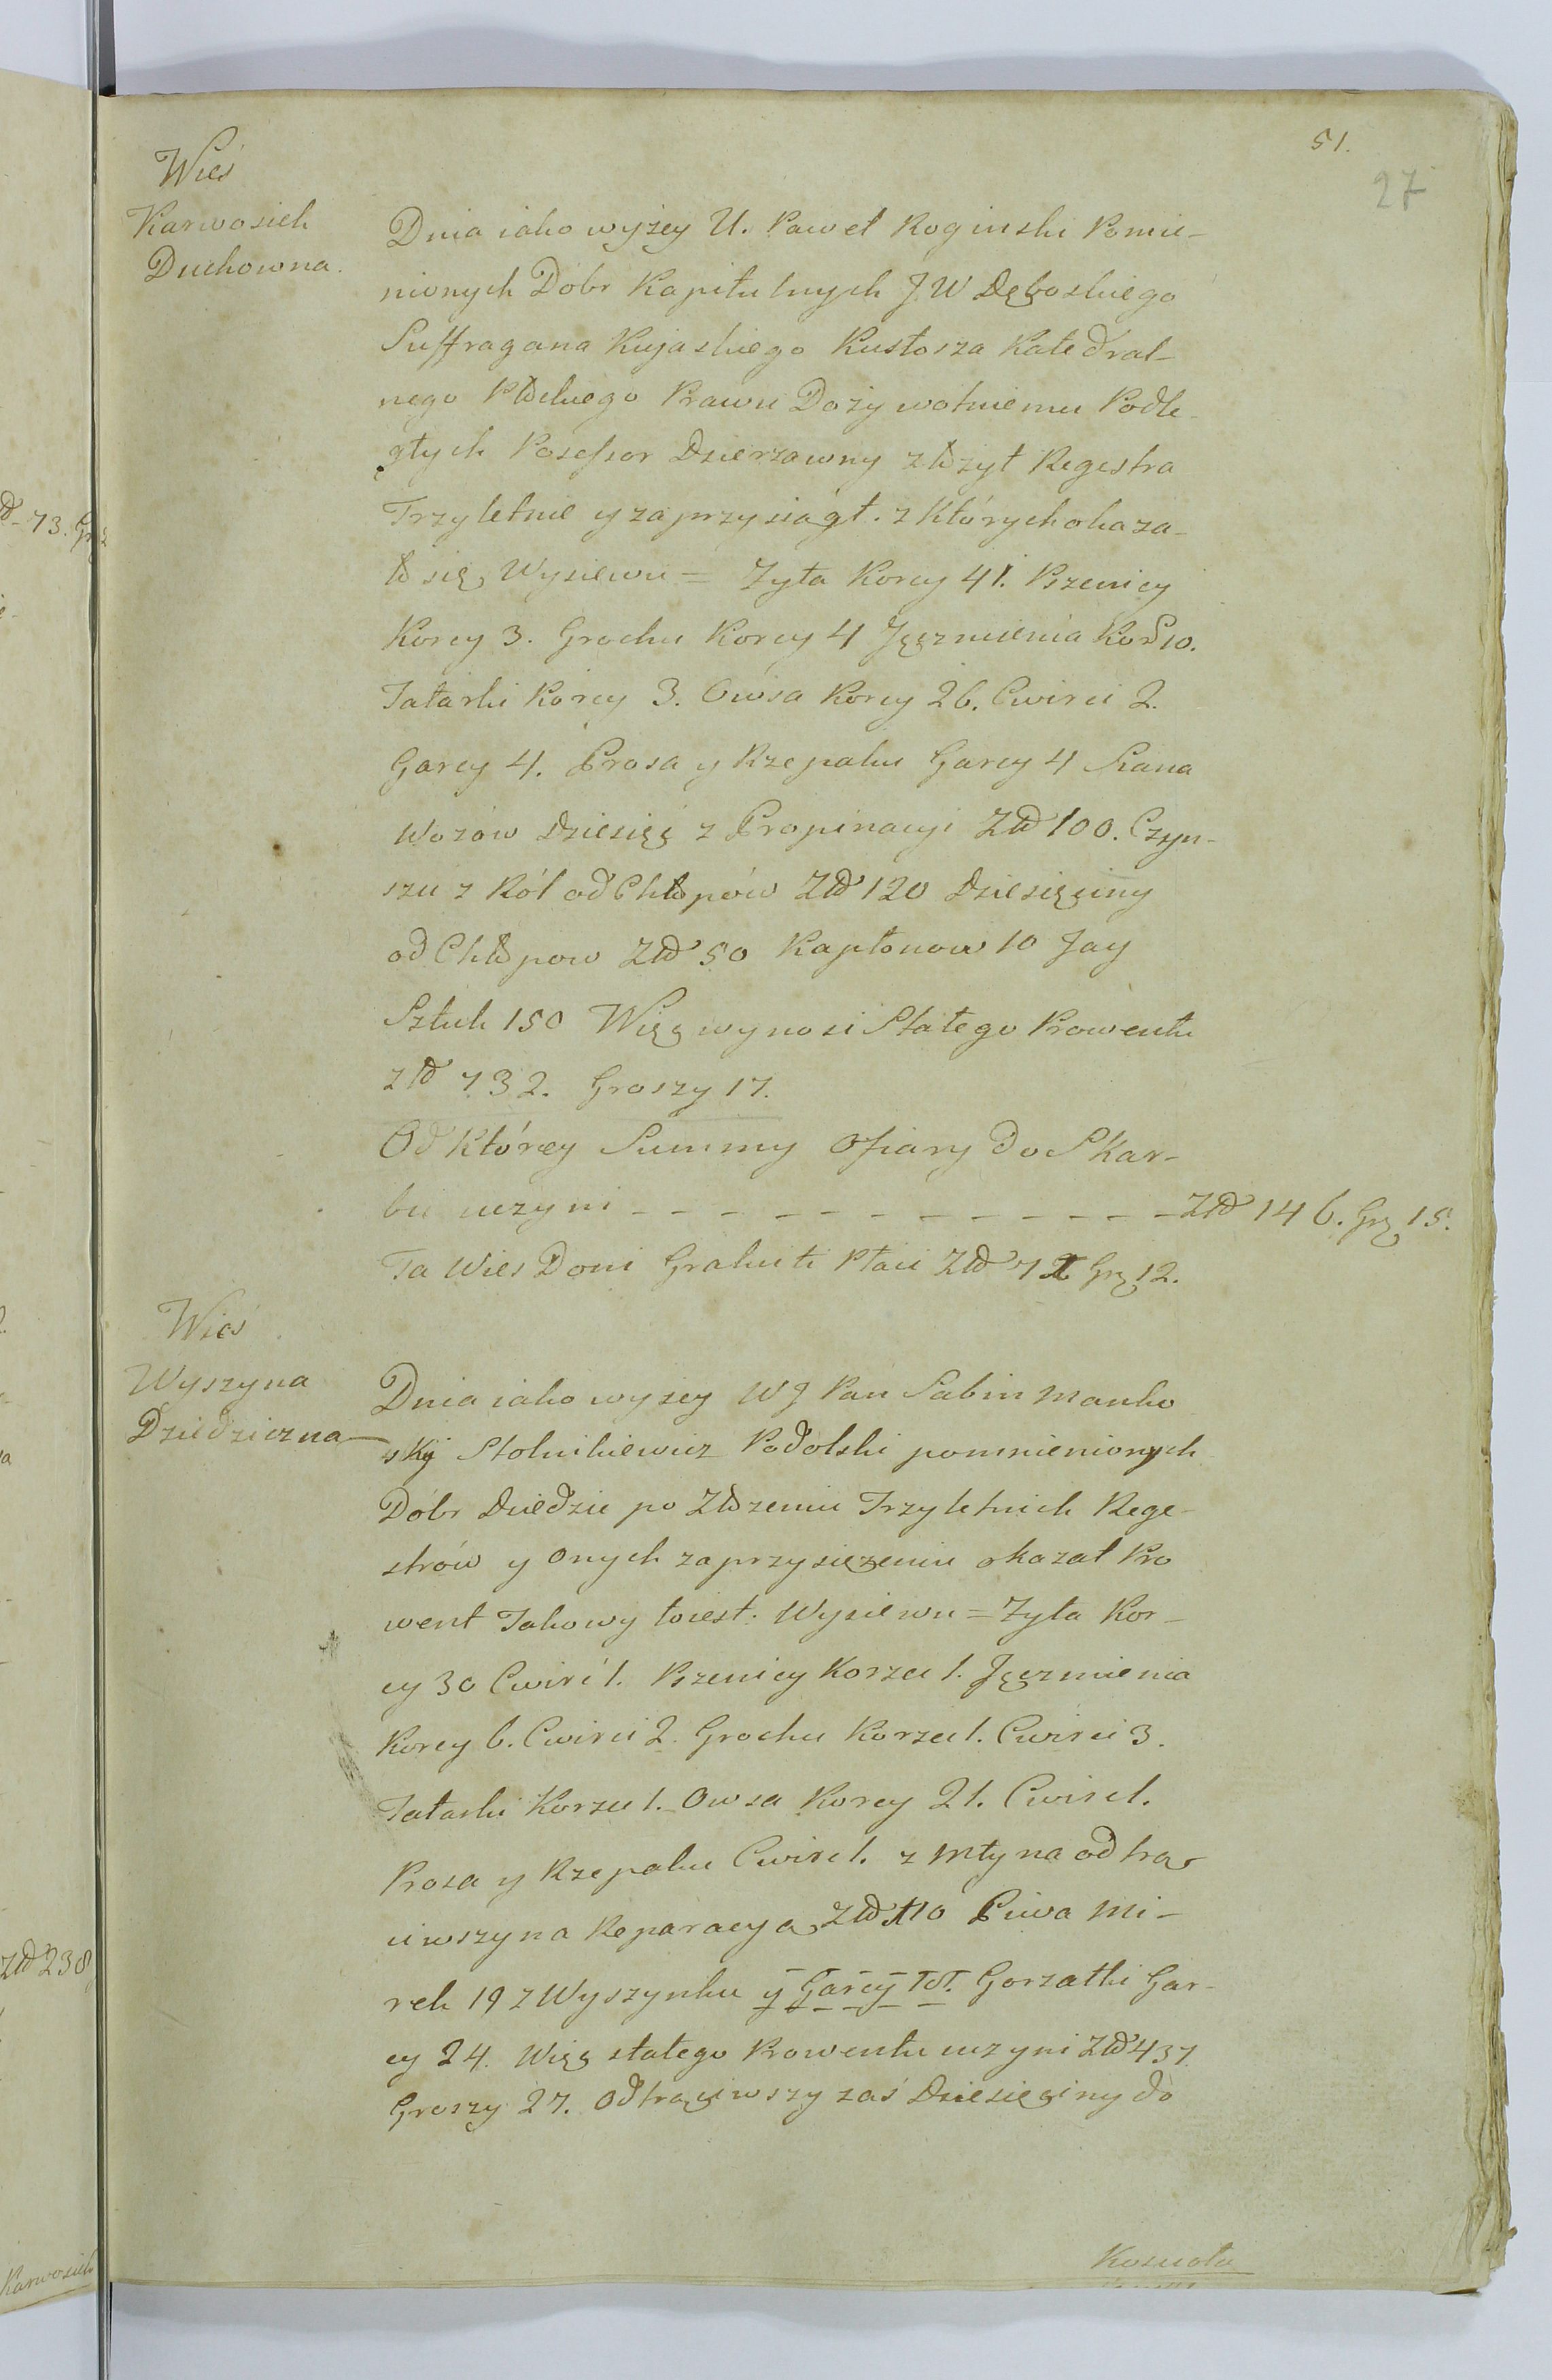 51.
27
Wieś
Karwosiek
Duchowna.
Dnia iako wyżey U. Paweł Roginski Pomie-
nionych Dobr Kapitulnych J W Dęboskiego
Suffragana Kujaskiego Kustosza Katedral-
nego Płłckiego Prawu Dożywotniemu Podle-
głych Posessor Dzierzawny złłżył Regestra
Trzyletnie y zaprzysiągł. z Których okaza-
ło się Wysiewu = Zyta Korcy 41. Pszenicy
Korcy 3. Grochu Korcy 4 Jęczmienia Kor 10.
Tatarki Korcy 3. Owsa Korcy 26. Cwirci 2.
Garcy 4. Prosa y Rzepaku Garcy 4 Siana
Wozów Dziesięć z Propinacyi Złł 100. Czyn-
szu z Ról od Chłopów Złł 120 Dziesięciny
od Chłopow Złł 50 Kapłonow 10 Jay
Sztuk 150 Więc wynosi Stałego Prowentu
złł 732. Groszy 17.
Od Którey Summy Ofiary do Skar-
bu uczyni - - - - - - - - - - - - Złł 146. Grz 15.
Ta Wies Doni Gratuiti Płaci Złł 72 Grz 12.
Wieś
Wyszyna
Dziedziczna
Dnia iako wyżey W J Pan Sabin Manko
skij Stolnikiewicz Podolski pomnienionych
Dóbr Dziedzic po Złożeniu Trzyletnich Rege-
strów y Onych zaprzysiężeniu okazał Pro
went Takowy toiest: Wysiewu = Zyta Kor-
cy 30 Cwirć 1. Pszenicy Korzec 1. Jęczmienia
Korcy 6. Cwirci 2. Grochu Korzec 1. Cwirci 3.
Tatarki Korzec 1. Owsa Korcy 21. Cwirc 1.
Prosa y Rzepaku Cwirc 1. z Młyna odtrą-
ciwszy na Reparacyą Złł 110 Piwa Mi-
rek 19 z Wyszynku y Garcy Gorzałki Gar-
cy 24. Więc stałego Prowentu uczyni Złł 437
Groszy 27. Odtrąciwszy zaś Dziesięciny do
złł 238
Karwosiek